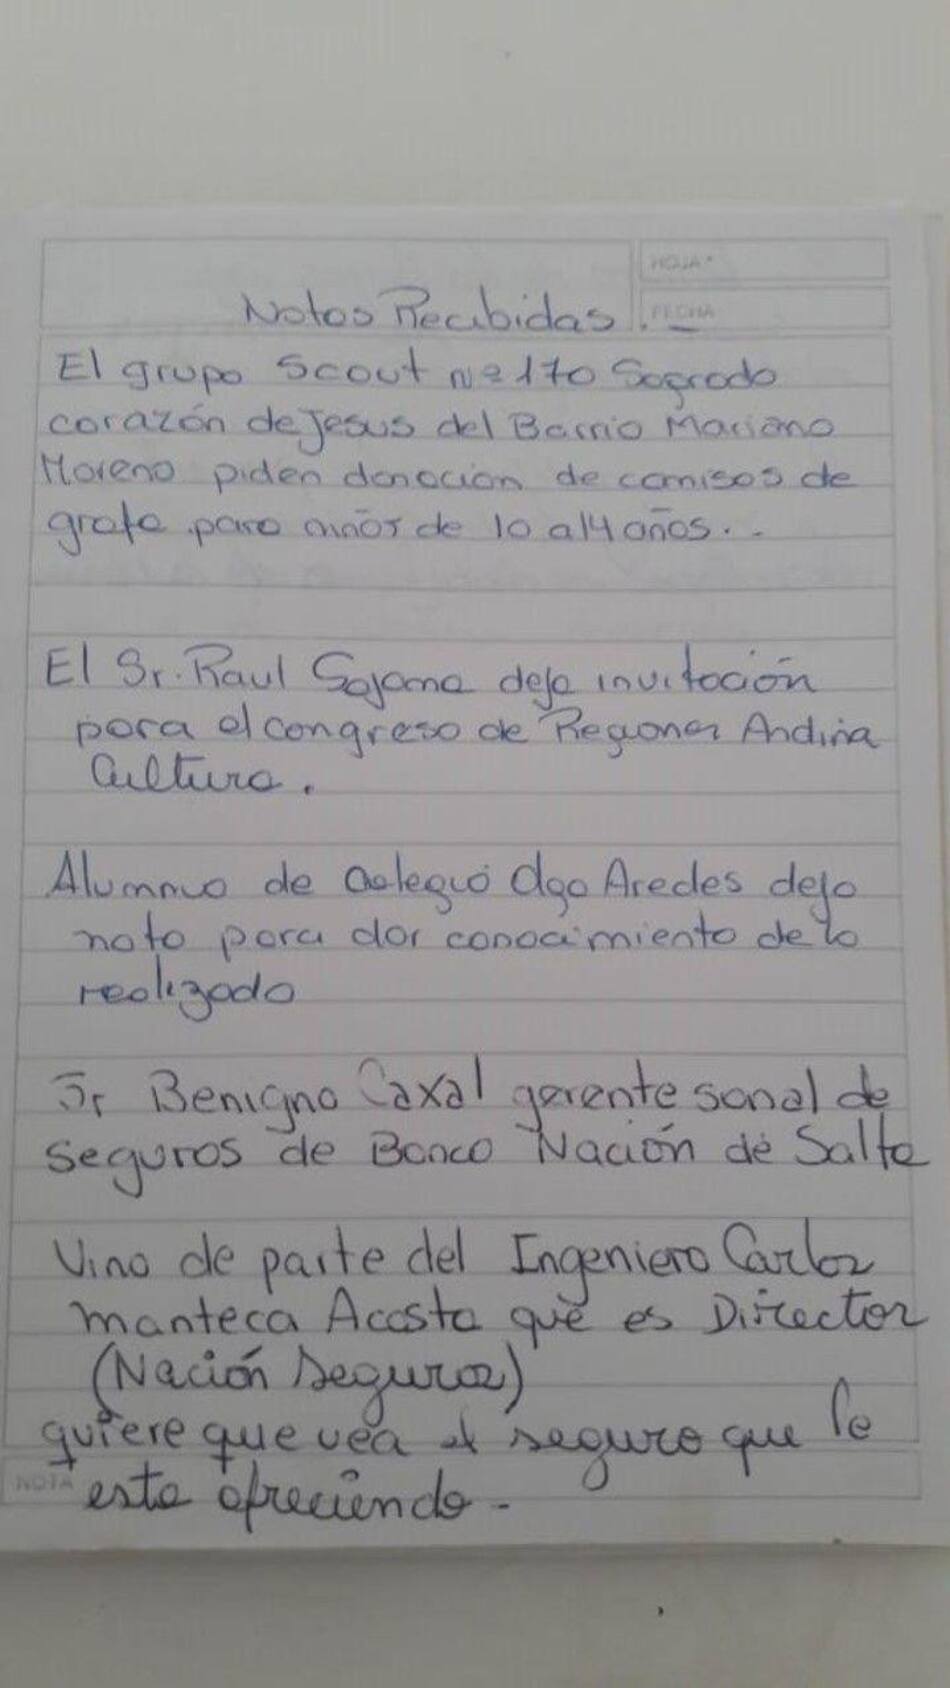 HOJA
FECHA
Notas Recibidas.
El grupo Scout Nº 170 Sagrado
corazón de Jesus del Barrio Mariano
Moreno piden donación de camisas de
grafa para niños de 10 a 14 años..
El Sr. Raul Sajama dejo invitación
para el congreso de Regiones Andina
Cultura.
Alumno de Colegio Dgo Aredes dejo
nota para dar conocimiento de lo
realizado
Sr Benigno Caxal gerente sonal de
seguros de Banco Nación de Salta
Vino de parte del Ingeniero Carlos
manteca Acosta que es Director
(Nación Seguros)
quiere que vea el seguro que le
NOTA
esta ofreciendo -